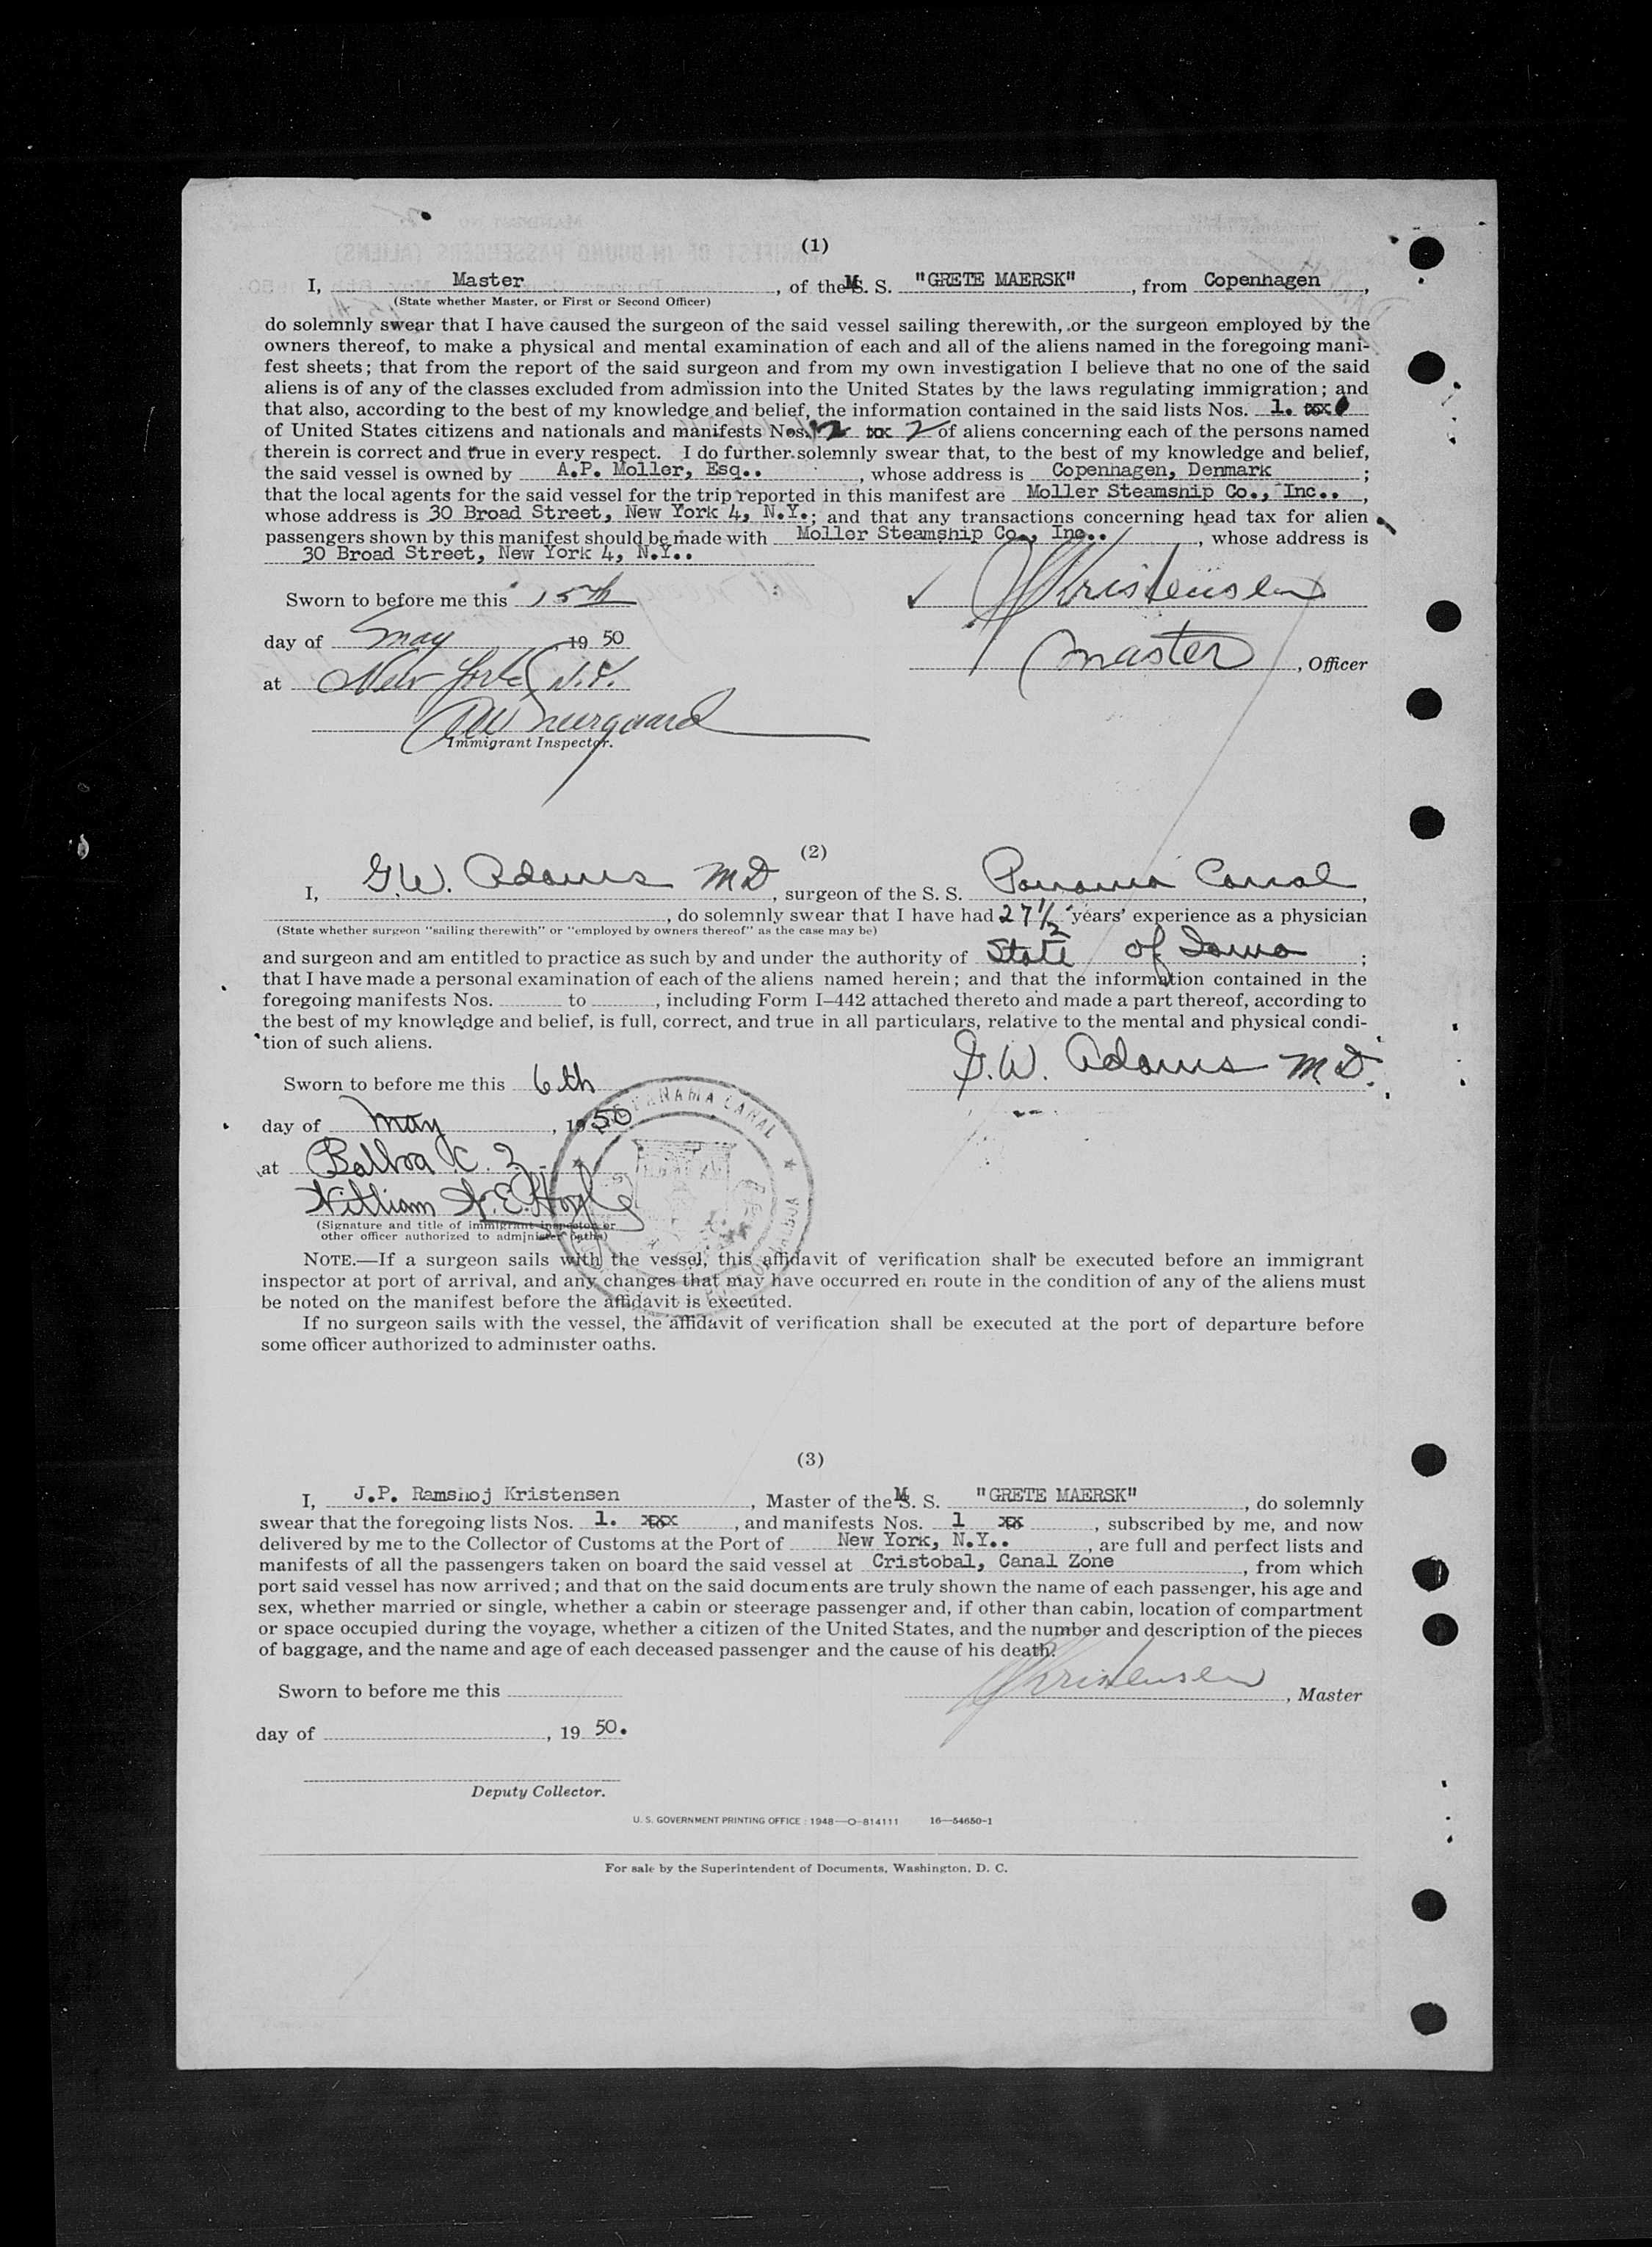 (1)
I, Master, of the M. S. "GRETE MAERSK", from Copenhagen,
(State whether Master, or First or Second Officer)
do solemnly swear that I have caused the surgeon of the said vessel sailing therewith, or the surgeon employed by the
owners thereof, to make a physical and mental examination of each and all of the aliens named in the foregoing mani-
fest sheets; that from the report of the said surgeon and from my own investigation I believe that no one of the said
aliens is of any of the classes excluded from admission into the United States by the laws regulating immigration; and
that also, according to the best of my knowledge and belief, the information contained in the said lists Nos. 1. xxx
of United States citizens and nationals and manifests Nos. 2 xx 2 of aliens concerning each of the persons named
therein is correct and true in every respect. I do further solemnly swear that, to the best of my knowledge and belief,
the said vessel is owned by A.P. Moller, Esq.., whose address is Copenhagen, Denmark;
that the local agents for the said vessel for the trip reported in this manifest are Moller Steamship Co., Inc..,
whose address is 30 Broad Street, New York 4, N.Y.; and that any transactions concerning head tax for alien
passengers shown by this manifest should be made with Moller Steamship Co., Inc.., whose address is
30 Broad Street, New York 4, N.Y..
Sworn to before me this 15th
Kristensen
day of May 19 50
Master, Officer
at New York, N.Y.
Immigrant Inspector.
(2)
I, G.W. Adams MD, surgeon of the S. S. Panama Canal,
, do solemnly swear that I have had 27 1/2 years' experience as a physician
(State whether surgeon "sailing therewith" or "employed by owners thereof" as the case may be)
and surgeon and am entitled to practice as such by and under the authority of State of Iowa;
that I have made a personal examination of each of the aliens named herein; and that the information contained in the
foregoing manifests Nos. to , including Form I–442 attached thereto and made a part thereof, according to
the best of my knowledge and belief, is full, correct, and true in all particulars, relative to the mental and physical condi-
tion of such aliens.
G.W. Adams M.D.
Sworn to before me this 6th
day of May, 1950
at Balboa C.Z.
PANAMA CANAL
William
(Signature and title of immigrant inspector or
other officer authorized to administer oaths)
NOTE.—If a surgeon sails with the vessel, this affidavit of verification shall be executed before an immigrant
inspector at port of arrival, and any changes that may have occurred en route in the condition of any of the aliens must
be noted on the manifest before the affidavit is executed.
If no surgeon sails with the vessel, the affidavit of verification shall be executed at the port of departure before
some officer authorized to administer oaths.
(3)
I, J.P. Ramshoj Kristensen, Master of the M. S. "GRETE MAERSK", do solemnly
swear that the foregoing lists Nos. 1. xxx, and manifests Nos. 1 xx, subscribed by me, and now
delivered by me to the Collector of Customs at the Port of New York, N.Y.., are full and perfect lists and
manifests of all the passengers taken on board the said vessel at Cristobal, Canal Zone, from which
port said vessel has now arrived; and that on the said documents are truly shown the name of each passenger, his age and
sex, whether married or single, whether a cabin or steerage passenger and, if other than cabin, location of compartment
or space occupied during the voyage, whether a citizen of the United States, and the number and description of the pieces
of baggage, and the name and age of each deceased passenger and the cause of his death.
Sworn to before me this
Kristensen, Master
day of , 19 50.
Deputy Collector.
U. S. GOVERNMENT PRINTING OFFICE : 1948—O-814111 16—54650-1
For sale by the Superintendent of Documents, Washington, D. C.